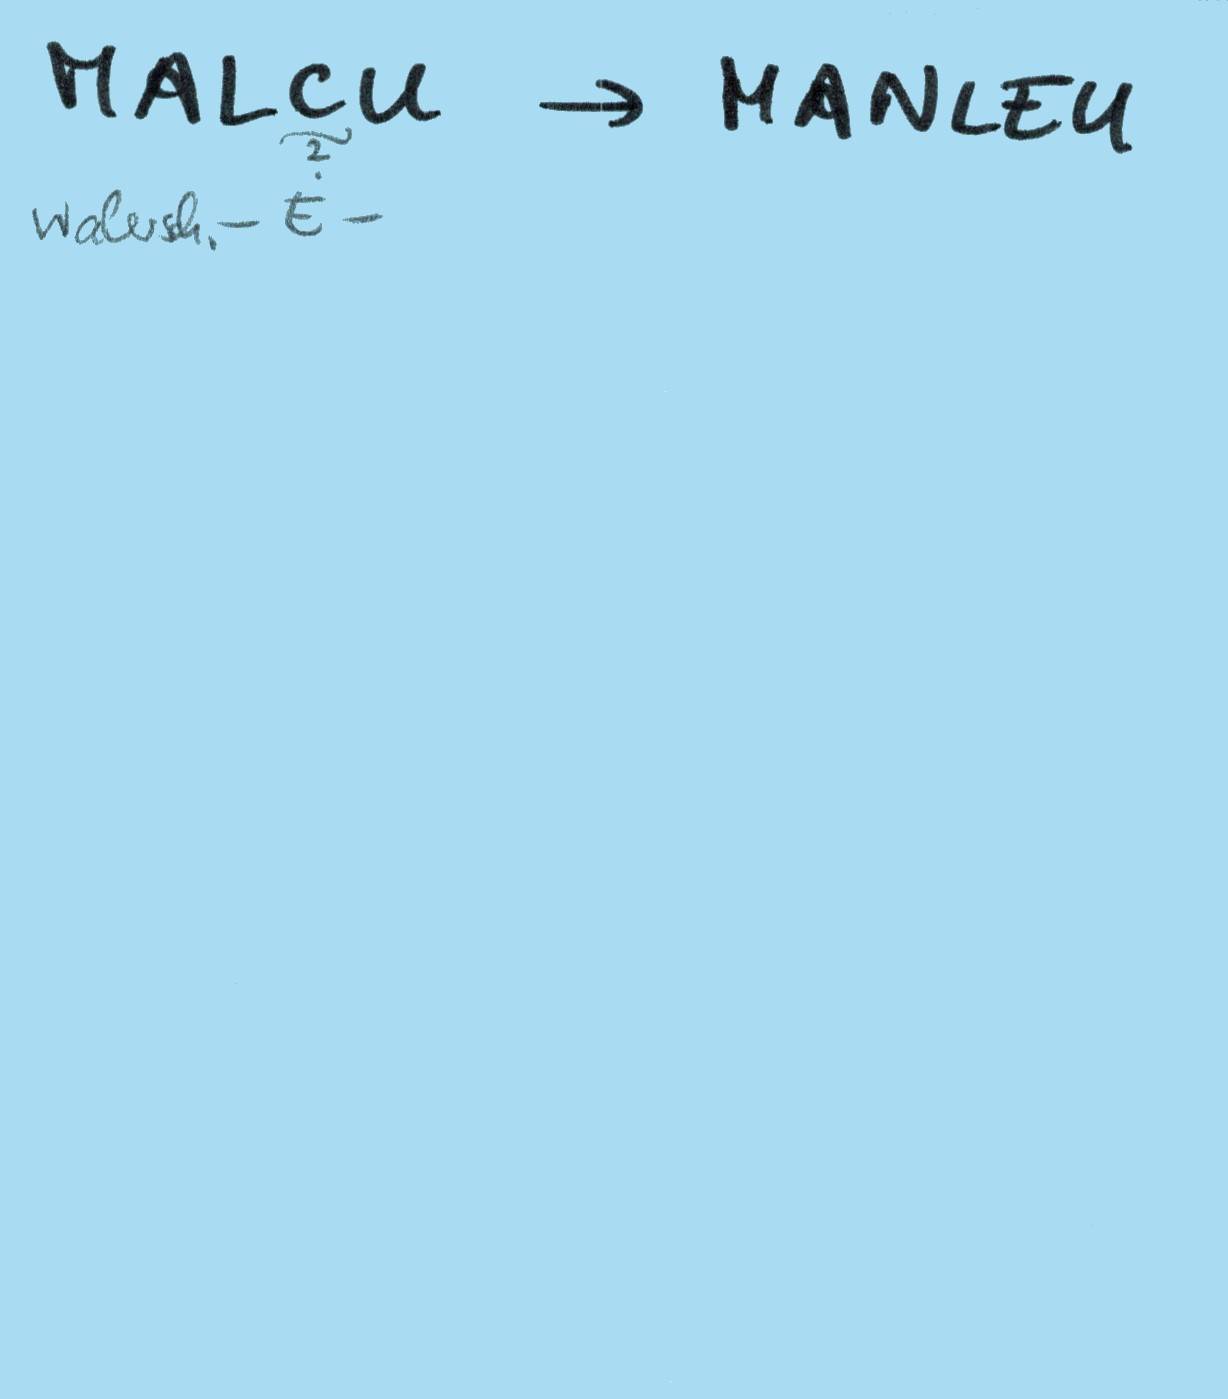 MALCU → MANLEU
?
Walersch. – E –